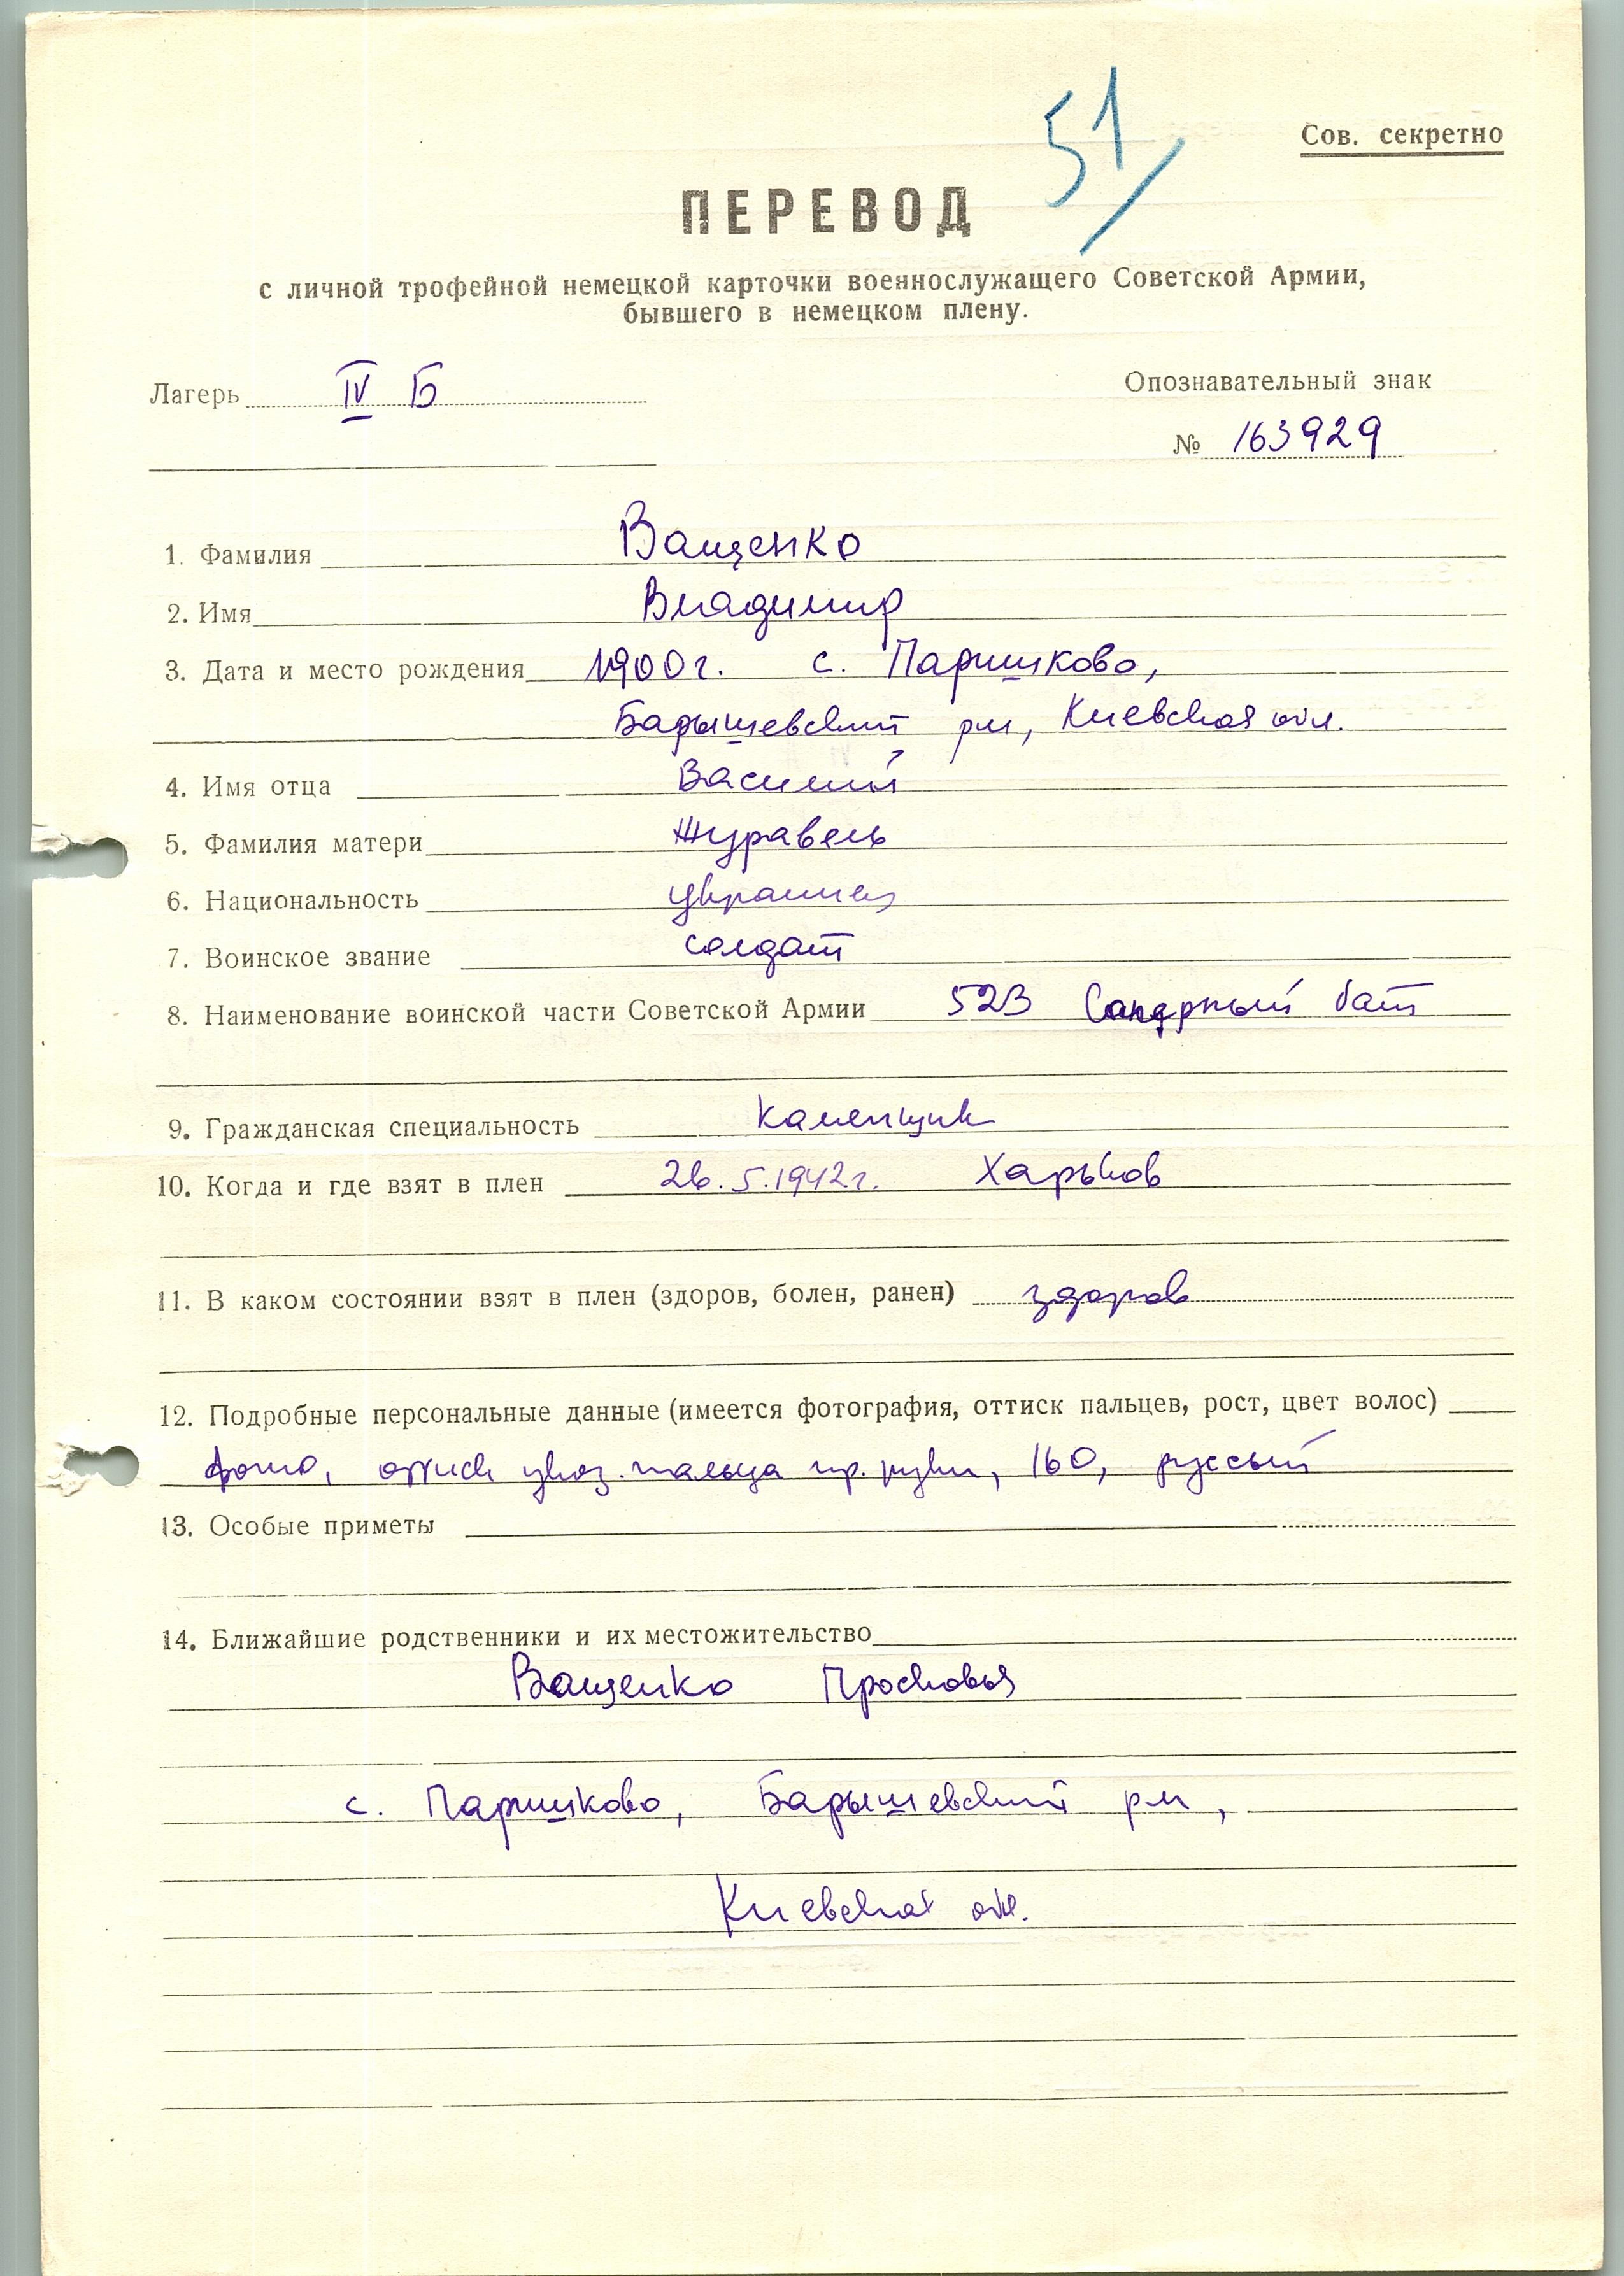 51/
Сов. секретно
ПЕРЕВОД
с личной трофейной немецкой карточки военнослужащего Советской Армии,
бывшего в немецком плену.
Лагерь IV Б
Опознавательный знак
№ 163929
1. Фамилия Ващенко
2. Имя Владимир
3. Дата и место рождения 1900 г. с. Паришково,
Барышевский рн, Киевская обл.
4. Имя отца Василий
5. Фамилия матери Журавель
6. Национальность украинец
7. Воинское звание солдат
8. Наименование воинской части Советской Армии 523 Саперный бат
9. Гражданская специальность каменщик
10. Когда и где взят в плен 26.5.1942 г. Харьков
11. В каком состоянии взят в плен (здоров, болен, ранен) здоров
12. Подробные персональные данные (имеется фотография, оттиск пальцев, рост, цвет волос)
фото, оттиск указ. пальца пр. руки, 160, руссый
13. Особые приметы
14. Ближайшие родственники и их местожительство
Ващенко Просковья
с. Паришково, Барышевский рн,
Киевская обл.